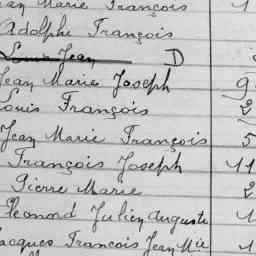 Jean Marie François 1
Adolphe François
Louis Jean D
Jean Marie Joseph 9
Louis François 2
Jean Marie François 5
François Joseph 11
Pierre Marie 2
Léonord Julien Auguste 1
Jacques François Jean Mie 1